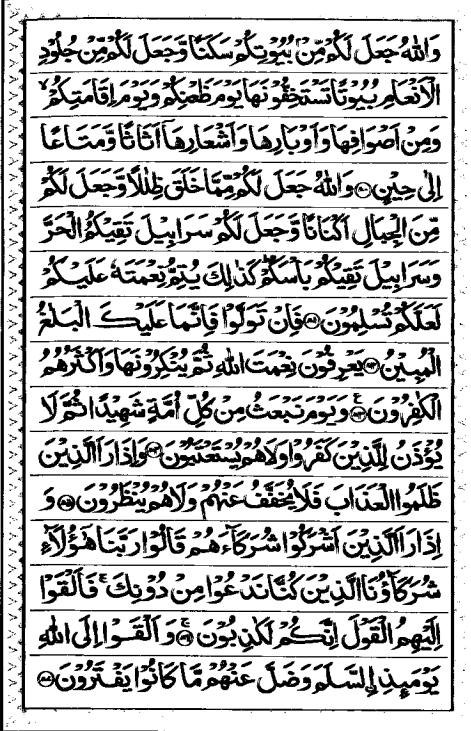 وَاللّٰهُ جَعَلَ لَكُمْ مِّنْۢ بُيُوْتِكُمْ سَكَنًا وَّجَعَلَ لَكُمْ مِّنْ جُلُوْدِ
الْاَنْعَامِ بُيُوْتًا تَسْتَخِفُّوْنَهَا يَوْمَ ظَعْنِكُمْ وَيَوْمَ اِقَامَتِكُمْ ۙ
وَمِنْ اَصْوَافِهَا وَاَوْبَارِهَا وَاَشْعَارِهَاۤ اَثَاثًا وَّمَتَاعًا
اِلٰى حِيْنٍ ﴿۸۰﴾ وَاللّٰهُ جَعَلَ لَكُمْ مِّمَّا خَلَقَ ظِلٰلًا وَّجَعَلَ لَكُمْ
مِّنَ الْجِبَالِ اَكْنَانًا وَّجَعَلَ لَكُمْ سَرَابِيْلَ تَقِيْكُمُ الْحَرَّ
وَسَرَابِيْلَ تَقِيْكُمْ بَاْسَكُمْ ؕ كَذٰلِكَ يُتِمُّ نِعْمَتَهٗ عَلَيْكُمْ
لَعَلَّكُمْ تُسْلِمُوْنَ ﴿۸۱﴾ فَاِنْ تَوَلَّوْا فَاِنَّمَا عَلَيْكَ الْبَلٰغُ
الْمُبِيْنُ ﴿۸۲﴾ يَعْرِفُوْنَ نِعْمَتَ اللّٰهِ ثُمَّ يُنْكِرُوْنَهَا وَاَكْثَرُهُمُ
الْكٰفِرُوْنَ ﴿۸۳﴾ وَيَوْمَ نَبْعَثُ مِنْ كُلِّ اُمَّةٍ شَهِيْدًا ثُمَّ لَا
يُؤْذَنُ لِلَّذِيْنَ كَفَرُوْا وَلَا هُمْ يُسْتَعْتَبُوْنَ ﴿۸۴﴾ وَاِذَا رَاَ الَّذِيْنَ
ظَلَمُوا الْعَذَابَ فَلَا يُخَفَّفُ عَنْهُمْ وَلَا هُمْ يُنْظَرُوْنَ ﴿۸۵﴾ وَ
اِذَا رَاَ الَّذِيْنَ اَشْرَكُوْا شُرَكَآءَهُمْ قَالُوْا رَبَّنَا هٰۤؤُلَآءِ
شُرَكَآؤُنَا الَّذِيْنَ كُنَّا نَدْعُوْا مِنْ دُوْنِكَ ۚ فَاَلْقَوْا
اِلَيْهِمُ الْقَوْلَ اِنَّكُمْ لَكٰذِبُوْنَ ﴿۸۶﴾ وَاَلْقَوْا اِلَى اللّٰهِ
يَوْمَئِذِ اِۨلسَّلَمَ وَضَلَّ عَنْهُمْ مَّا كَانُوْا يَفْتَرُوْنَ ﴿۸۷﴾